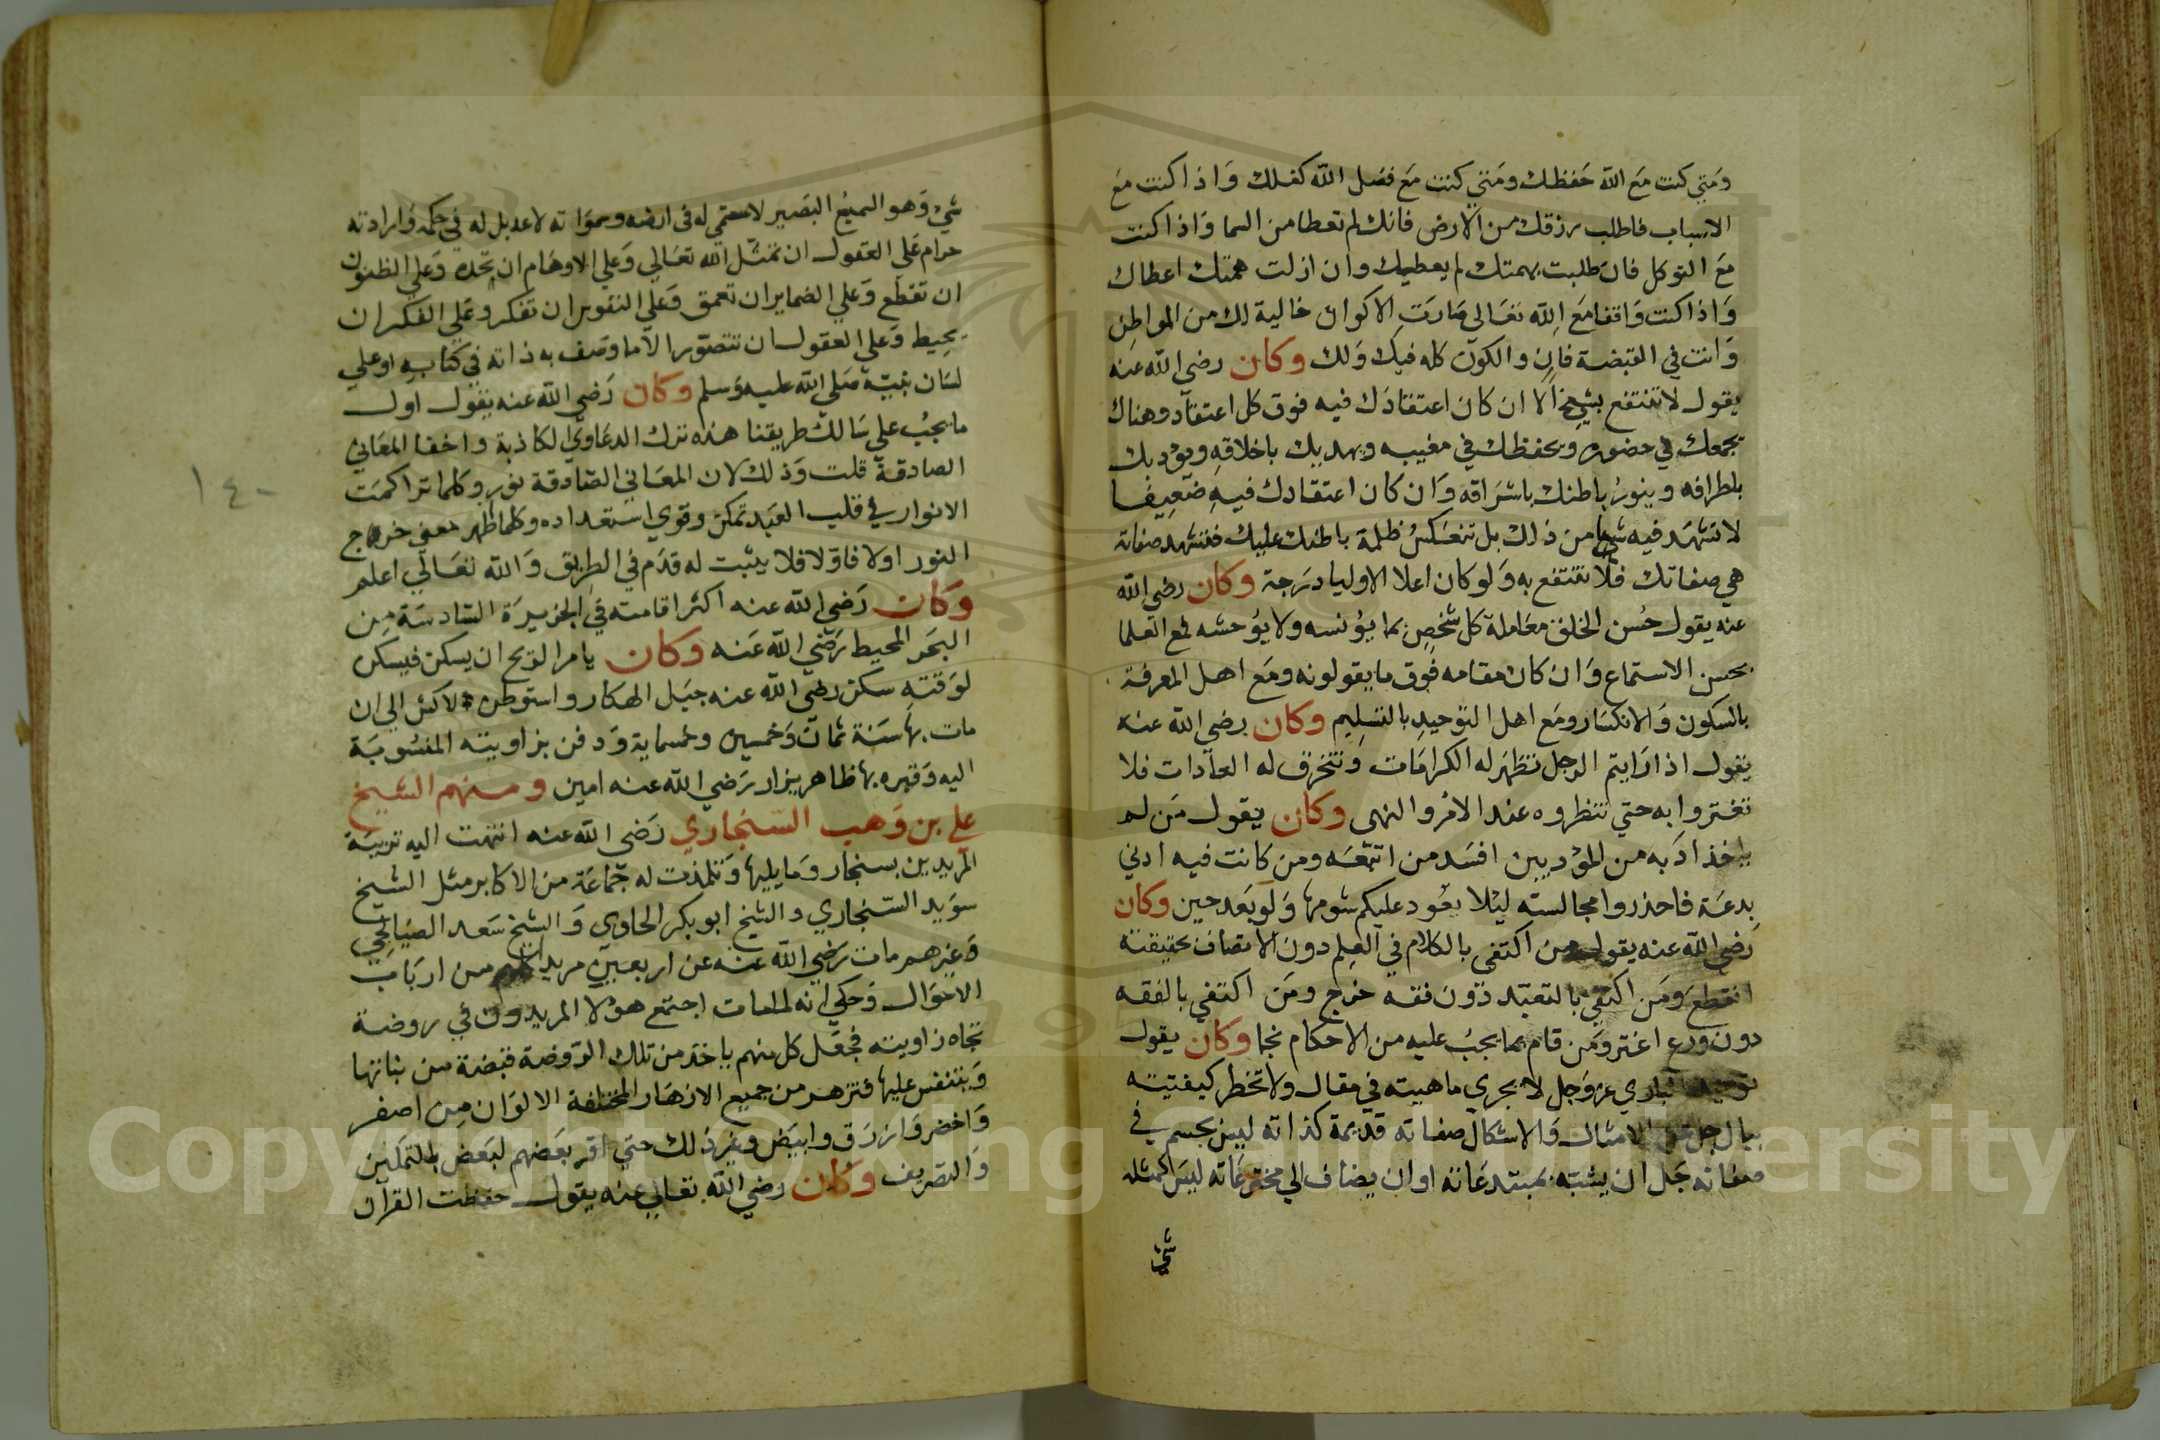 ومتي كنت مع الله حفظك ومتي كنت مع فضل الله كفلك واذا كنت مع
الاسباب فاطلب رزقك من الارض فانك لم تعطا من السما واذا كنت
مع التوكل فان طلبت بهمتك لم يعطيك وان ازلت همتك اعطاك
واذا كنت واقفا مع الله تعالى صارت الاكوان خالية لك من المواطن
وانت في القبضة فان والكون كله فيك ولك وكان رضي الله عنه
يقول لا تنتفع بشيخ الا ان كان اعتقادك فيه فوق كل اعتقاد وهناك
يجمعك في حضوره ويحفظك في مغيبه ويهديك باخلاقه ويؤدبك
باطرافه وينور باطنك باشراقه وان كان اعتقادك فيه ضعيفا
لا تشهد فيه شيا من ذلك بل تنعكس ظلمة باطنك عليك فتشهد صفاته
هي صفاتك فلا تنتفع به ولو كان اعلا الاوليا درجة وكان رضي الله
عنه يقول حسن الخلق معاملة كل شخص بما يؤنسه ولا يؤحشه فمع العلما
بحسن الاستماع وان كان مقامه فوق ما يقولونه ومع اهل المعرفة
بالسكون والانكسار ومع اهل التوحيد بالتسليم وكان رضي الله عنه
يقول اذا رايتم الرجل تظهر له الكرامات وتنخرق له العادات فلا
تغتروا به حتي تنظروه عند الامر والنهى وكان يقول من لم
ياخذ ادبه من المؤدبين افسد من اتبعه ومن كانت فيه ادني
بدعة فاحذروا مجالسته ليلا يعود عليكم شومها ولو بعد حين وكان
رضي الله عنه يقول من اكتفي بالكلام في العلم دون الاتصاف بحقيقته
انقطع ومن اكتفي بالتعبد دون فقه خرج ومن اكتفي بالفقه
دون ورع اغتر ومن قام بما يجب عليه من الاحكام نجا وكان يقول
توحيد الباري عز وجل لا يجري ماهيته في مقال ولا تخطر كيفيته
ببال جل عن الامثال والاشكال صفاته قديمة كذاته ليس بجسم في
صفاته جل ان يشبه بمبتدعاته او ان يضاف الي مخترعاته ليس كمثله
شي
شي وهو السميع البصير لا سمي له في ارضه وسمواته لا عديل له في حكمه وارادته
حرام على العقول ان تمثل الله تعالي وعلي الاوهام ان تحده وعلي الظنون
ان تقطع وعلي الضماير ان تعمق وعلي النفوس ان تفكر وعلي الفكر ان
يحيط وعلي العقول ان تتصور الا ما وصف به ذاته في كتابه او علي
لسان نبيه صلى الله عليه وسلم وكان رضي الله عنه يقول اول
ما يجب علي سالك طريقنا هذه ترك الدعاوي الكاذبة واخفا المعاني
الصادقة قلت وذلك لان المعاني الصادقة نور وكلما تراكمت
الانوار في قلب العبد تمكن وقوي استعداده وكلما ظهر معني خرج
النور اولا فاولا فلا يثبت له قدم في الطريق والله تعالي اعلم
وكان رضي الله عنه اكثر اقامته في الجزيرة السادسة من
البحر المحيط رضي الله عنه وكان يامر الريح ان يسكن فيسكن
لوقته سكن رضي الله عنه جبل الهكار واستوطن لالش الي ان
مات بها سنة ثمان وخمسين وخمسماية ودفن بزاويته المنسوبة
اليه وقبره بها ظاهر يزار رضي الله عنه امين ومنهم الشيخ
علي بن وهب السنجاري رضي الله عنه انتهت اليه تربية
المريدين بسنجار وما يليها وتلمذت له جماعة من الاكابر مثل الشيخ
سويد السنجاري والشيخ ابو بكر الحاوي والشيخ سعد الصنايحي
وغيرهم مات رضي الله عنه عن اربعين مريدا من ارباب
الاحوال وحكي انه لما مات اجتمع هؤلا المريدون في روضة
تجاه زاويته فجعل كل منهم ياخذ من تلك الروضة قبضة من نباتها
ويتنفس عليها فتزهر من جميع الازهار المختلفة الالوان من اصفر
واخضر وازرق وابيض وغير ذلك حتي اقر بعضهم لبعض بالتمكين
والتصريف وكان رضي الله تعالي عنه يقول حفظت القرآن
١٤٠
Copyright © King Saud University